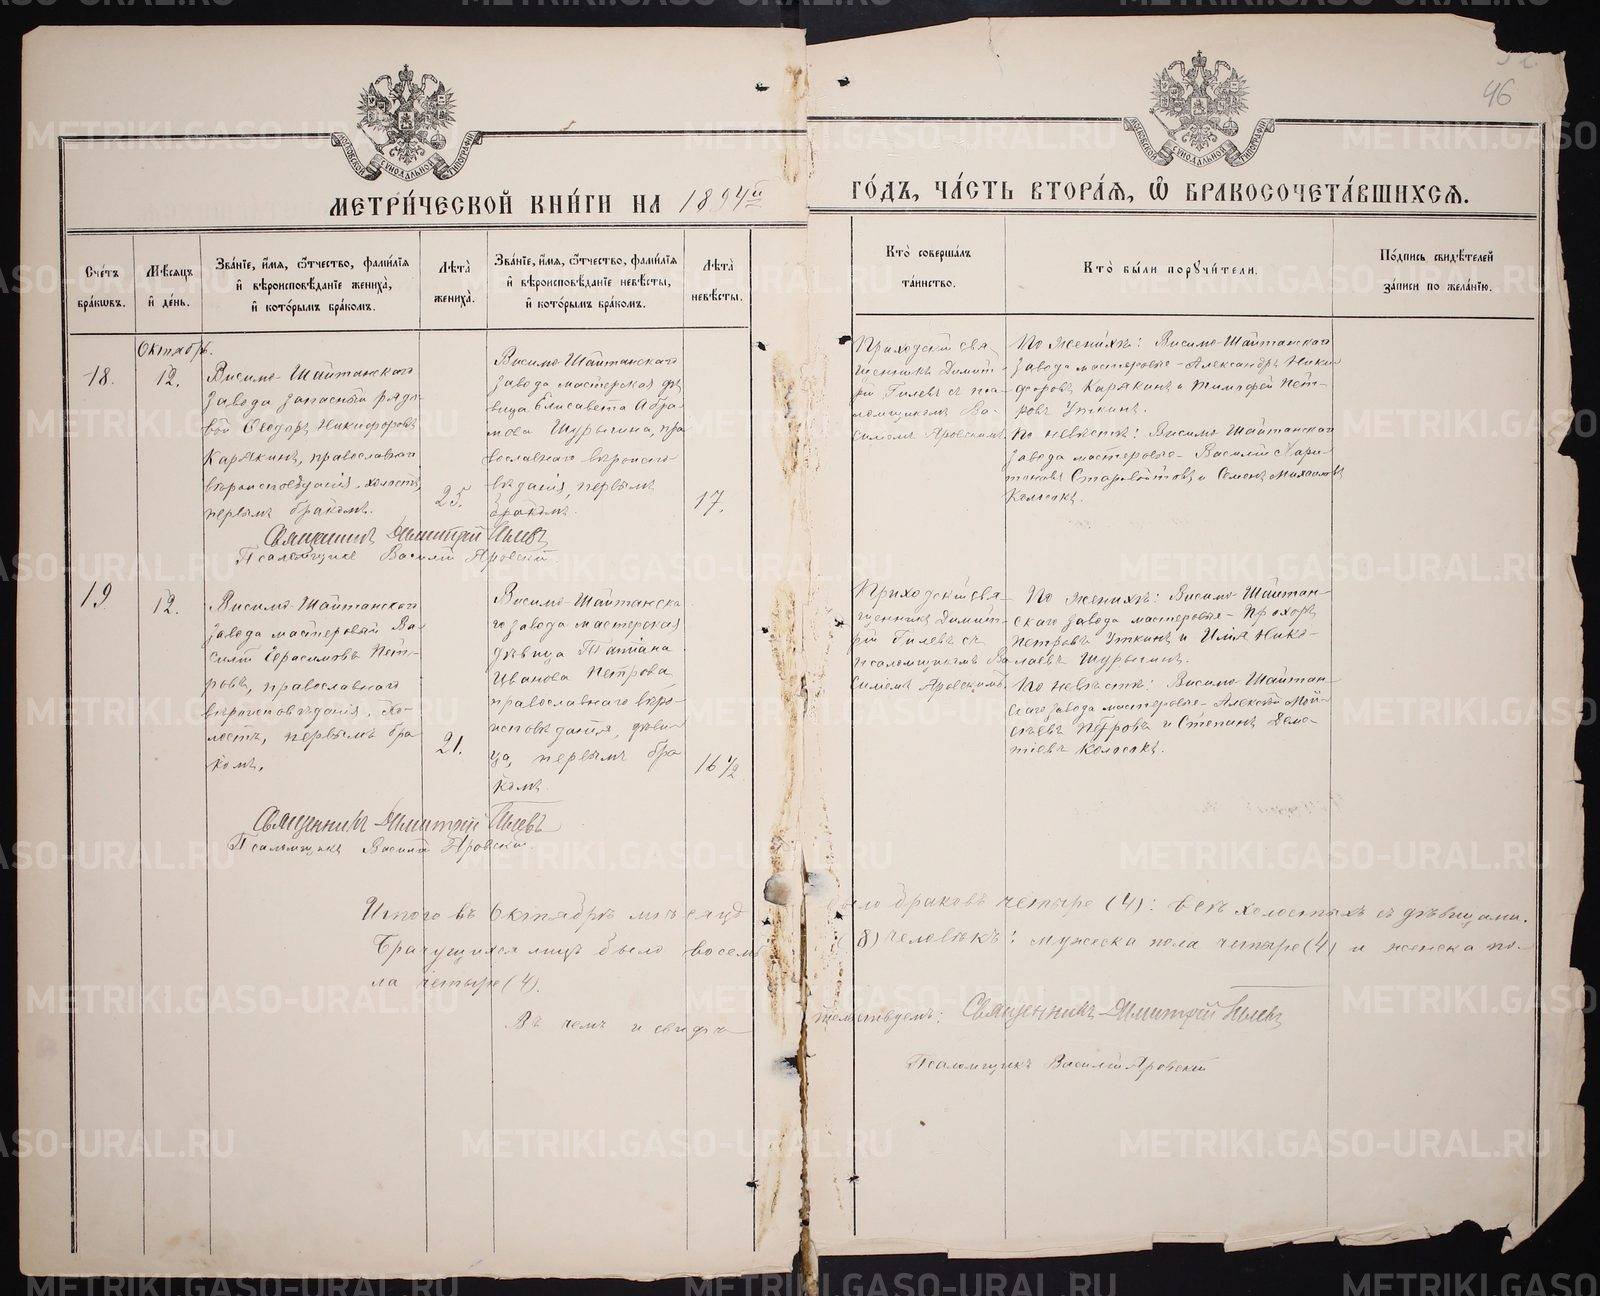 46
МОСКОВСКОЙ СѴНОДАЛЬНОЙ ТИПОГРАФІИ
МОСКОВСКОЙ СѴНОДАЛЬНОЙ ТИПОГРАФІИ
МЕТРИ́ЧЕСКОЙ КНИ́ГИ НА 1894й
ГО́ДЪ, ЧА́СТЬ ВТОРА́Я, Ѽ БРАКОСОЧЕТА́ВШИХСЯ.
Сче́тъ бра́кωвъ.
Мѣ́сяцъ и҆ де́нь.
Зва́нїе, и҆́мя, ѻ҆́тчество, фами́лїя и҆ вѣроисповѣ́данїе жениха̀, и҆ кото́рымъ бра́комъ.
Лѣ́та жениха̀.
Зва́нїе, и҆́мя, ѻ҆́тчество, фами́лїя и҆ вѣроисповѣ́данїе невѣ́сты, и҆ кото́рымъ бра́комъ.
Лѣ́та невѣ́сты.
Кто̀ соверша́лъ та́инство.
Кто̀ бы́ли порꙋчи́тели.
По́дпись свидѣ́телей за́писи по жела́нїю.
Октябрь.
18.
12.
Висимо-Шайтанскаго
завода запасный рядо-
вой Ѳеодоръ Никифоровъ
Карякинъ, православнаго
вѣроисповѣданія, холостъ,
первымъ бракомъ.
25.
Висимо-Шайтанскаго
завода мастерская дѣ-
вица Елисавета Абра-
мова Шурыгина, пра-
вославнаго вѣроиспо-
вѣданія, первымъ
бракомъ.
17.
Приходскій свя-
щенникъ Димит-
рій Гилевъ съ пса-
ломщикомъ Ва-
силіемъ Яровскимъ.
По женихѣ: Висимо-Шайтанскаго
завода мастеровые - Александръ Ники-
форовъ Карякинъ и Тимофей Пет-
ровъ Уткинъ.
По невѣстѣ: Висимо-Шайтанскаго
завода мастеровые - Василій Хари-
тоновъ и Семенъ Михаиловъ
Священникъ Димитрій Гилевъ
Псаломщикъ Василій Яровскій.
19
12.
Висимо-Шайтанскаго
завода мастеровый Ва-
силій Герасимовъ Пет-
ровъ, православнаго
вѣроисповѣданія, хо-
лостъ, первымъ бра-
комъ.
21.
Висимо-Шайтанска-
го завода мастерская
дѣвица Татіана
Иванова Петрова,
православнаго вѣро-
исповѣданія, дѣви-
ца, первымъ бра-
комъ.
16 1/2
Приходскій свя-
щенникъ Димит-
рій Гилевъ съ
псаломщикомъ Ва-
силіемъ Яровскимъ.
По женихѣ: Висимо-Шайтан-
скаго завода мастеровые - Прохоръ
Петровъ Уткинъ и Илія Нико-
лаевъ Шурыгинъ.
По невѣстѣ: Висимо-Шайтан-
скаго завода мастеровые - Алексѣй Мои-
сѣевъ Петровъ и Степанъ
Священникъ Димитрій Гилевъ
Псаломщикъ Василій Яровскій.
Итого въ Октябрѣ мѣсяцѣ было браковъ четыре (4): всѣ холостыхъ съ дѣвицами.
Брачущихся лицъ было восемь (8) человѣкъ: мужеска пола четыре (4) и женска по-
ла четыре (4).
Въ чемъ и свидѣтельствуемъ: Священникъ Димитрій Гилевъ
Псаломщикъ Василій Яровскій
METRIKI.GASO-URAL.RU